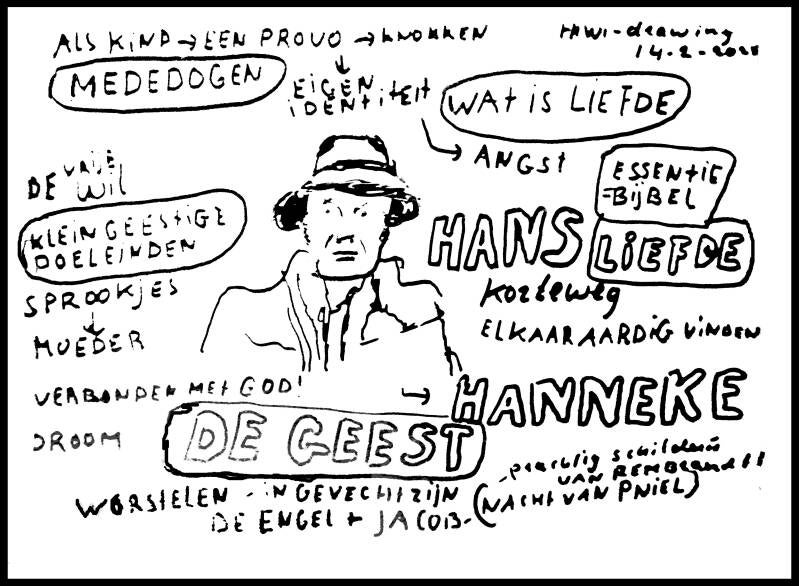 ALS KIND → EEN PROVO → KNOKKEN
HAWI-drawing
14-2-2025
MEDEDOGEN
EIGEN
IDENTITEIT
WAT IS LIEFDE
ANGST
DE VRIJE
WIL
ESSENTIE
-BIJBEL
KLEINGEESTIGE
DOELEINDEN
HANS LIEFDE
Korteweg
SPROOKJES
MOEDER
ELKAAR AARDIG VINDEN
VERBONDEN MET GOD!
→ HANNEKE
DROOM
DE GEEST
-prachtig schilderij
VAN REMBRANDT
WORSTELEN - IN GEVECHT ZIJN
(NACHT VAN PNIEL)
DE ENGEL + JACOB-